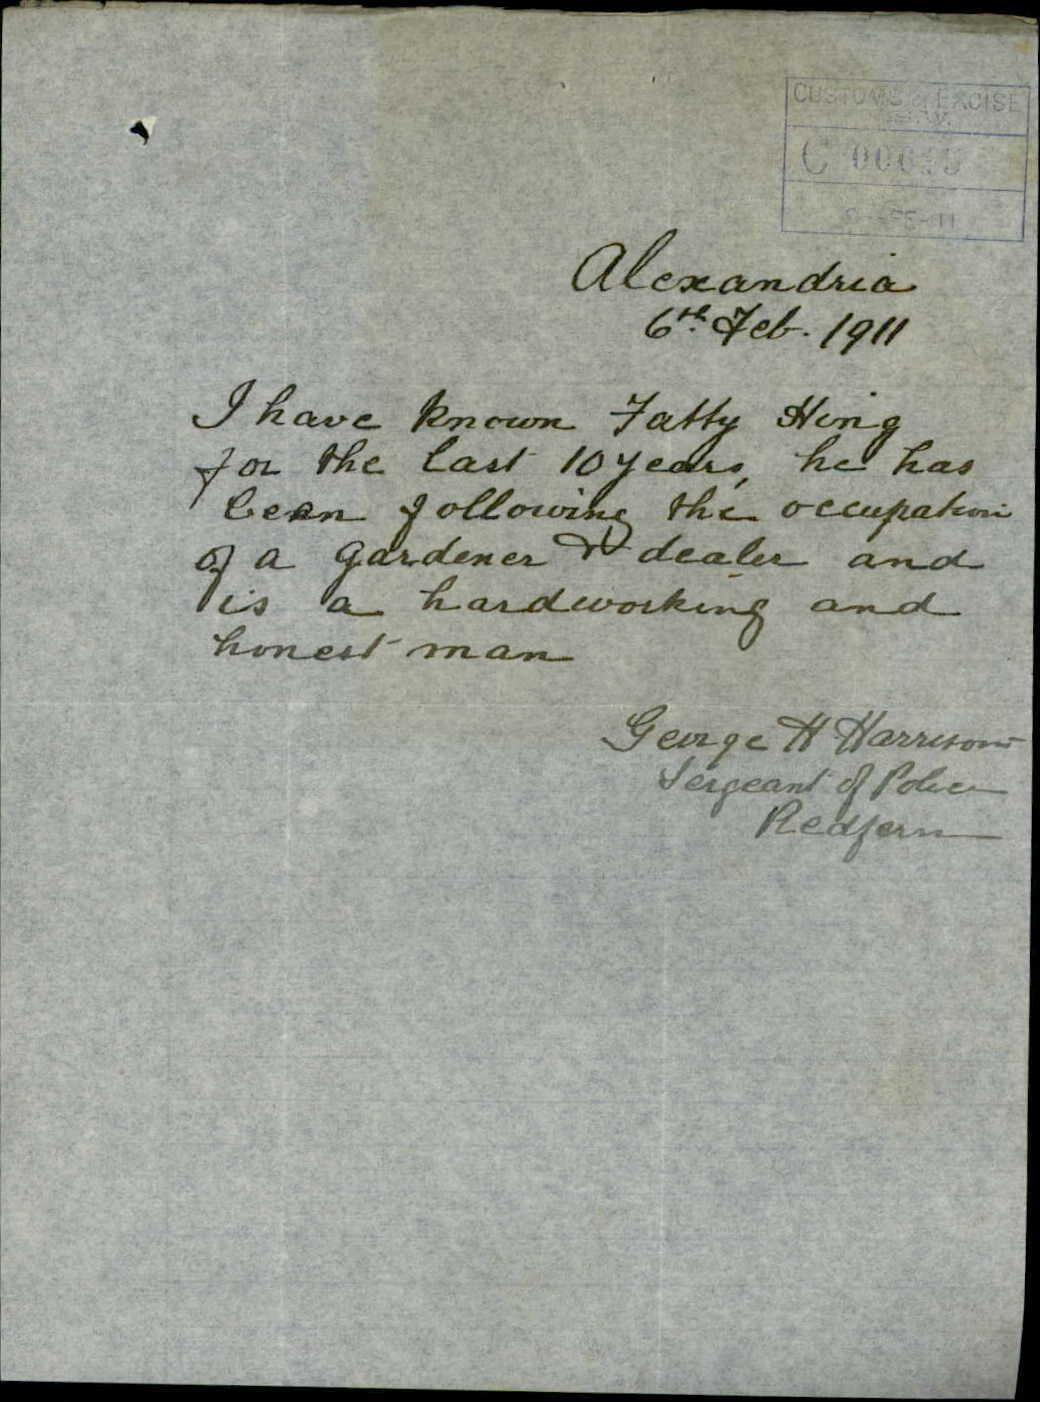 CUSTOMS & EXCISE
N.S.W.
C
Alexandria
6th. Feb. 1911
I have known Fatty Hing
for the last 10 years, he has
been following the occupation
of a gardener & dealer and
is a hardworking and
honest man
George H Harrison
Sergeant of Police
Redfern